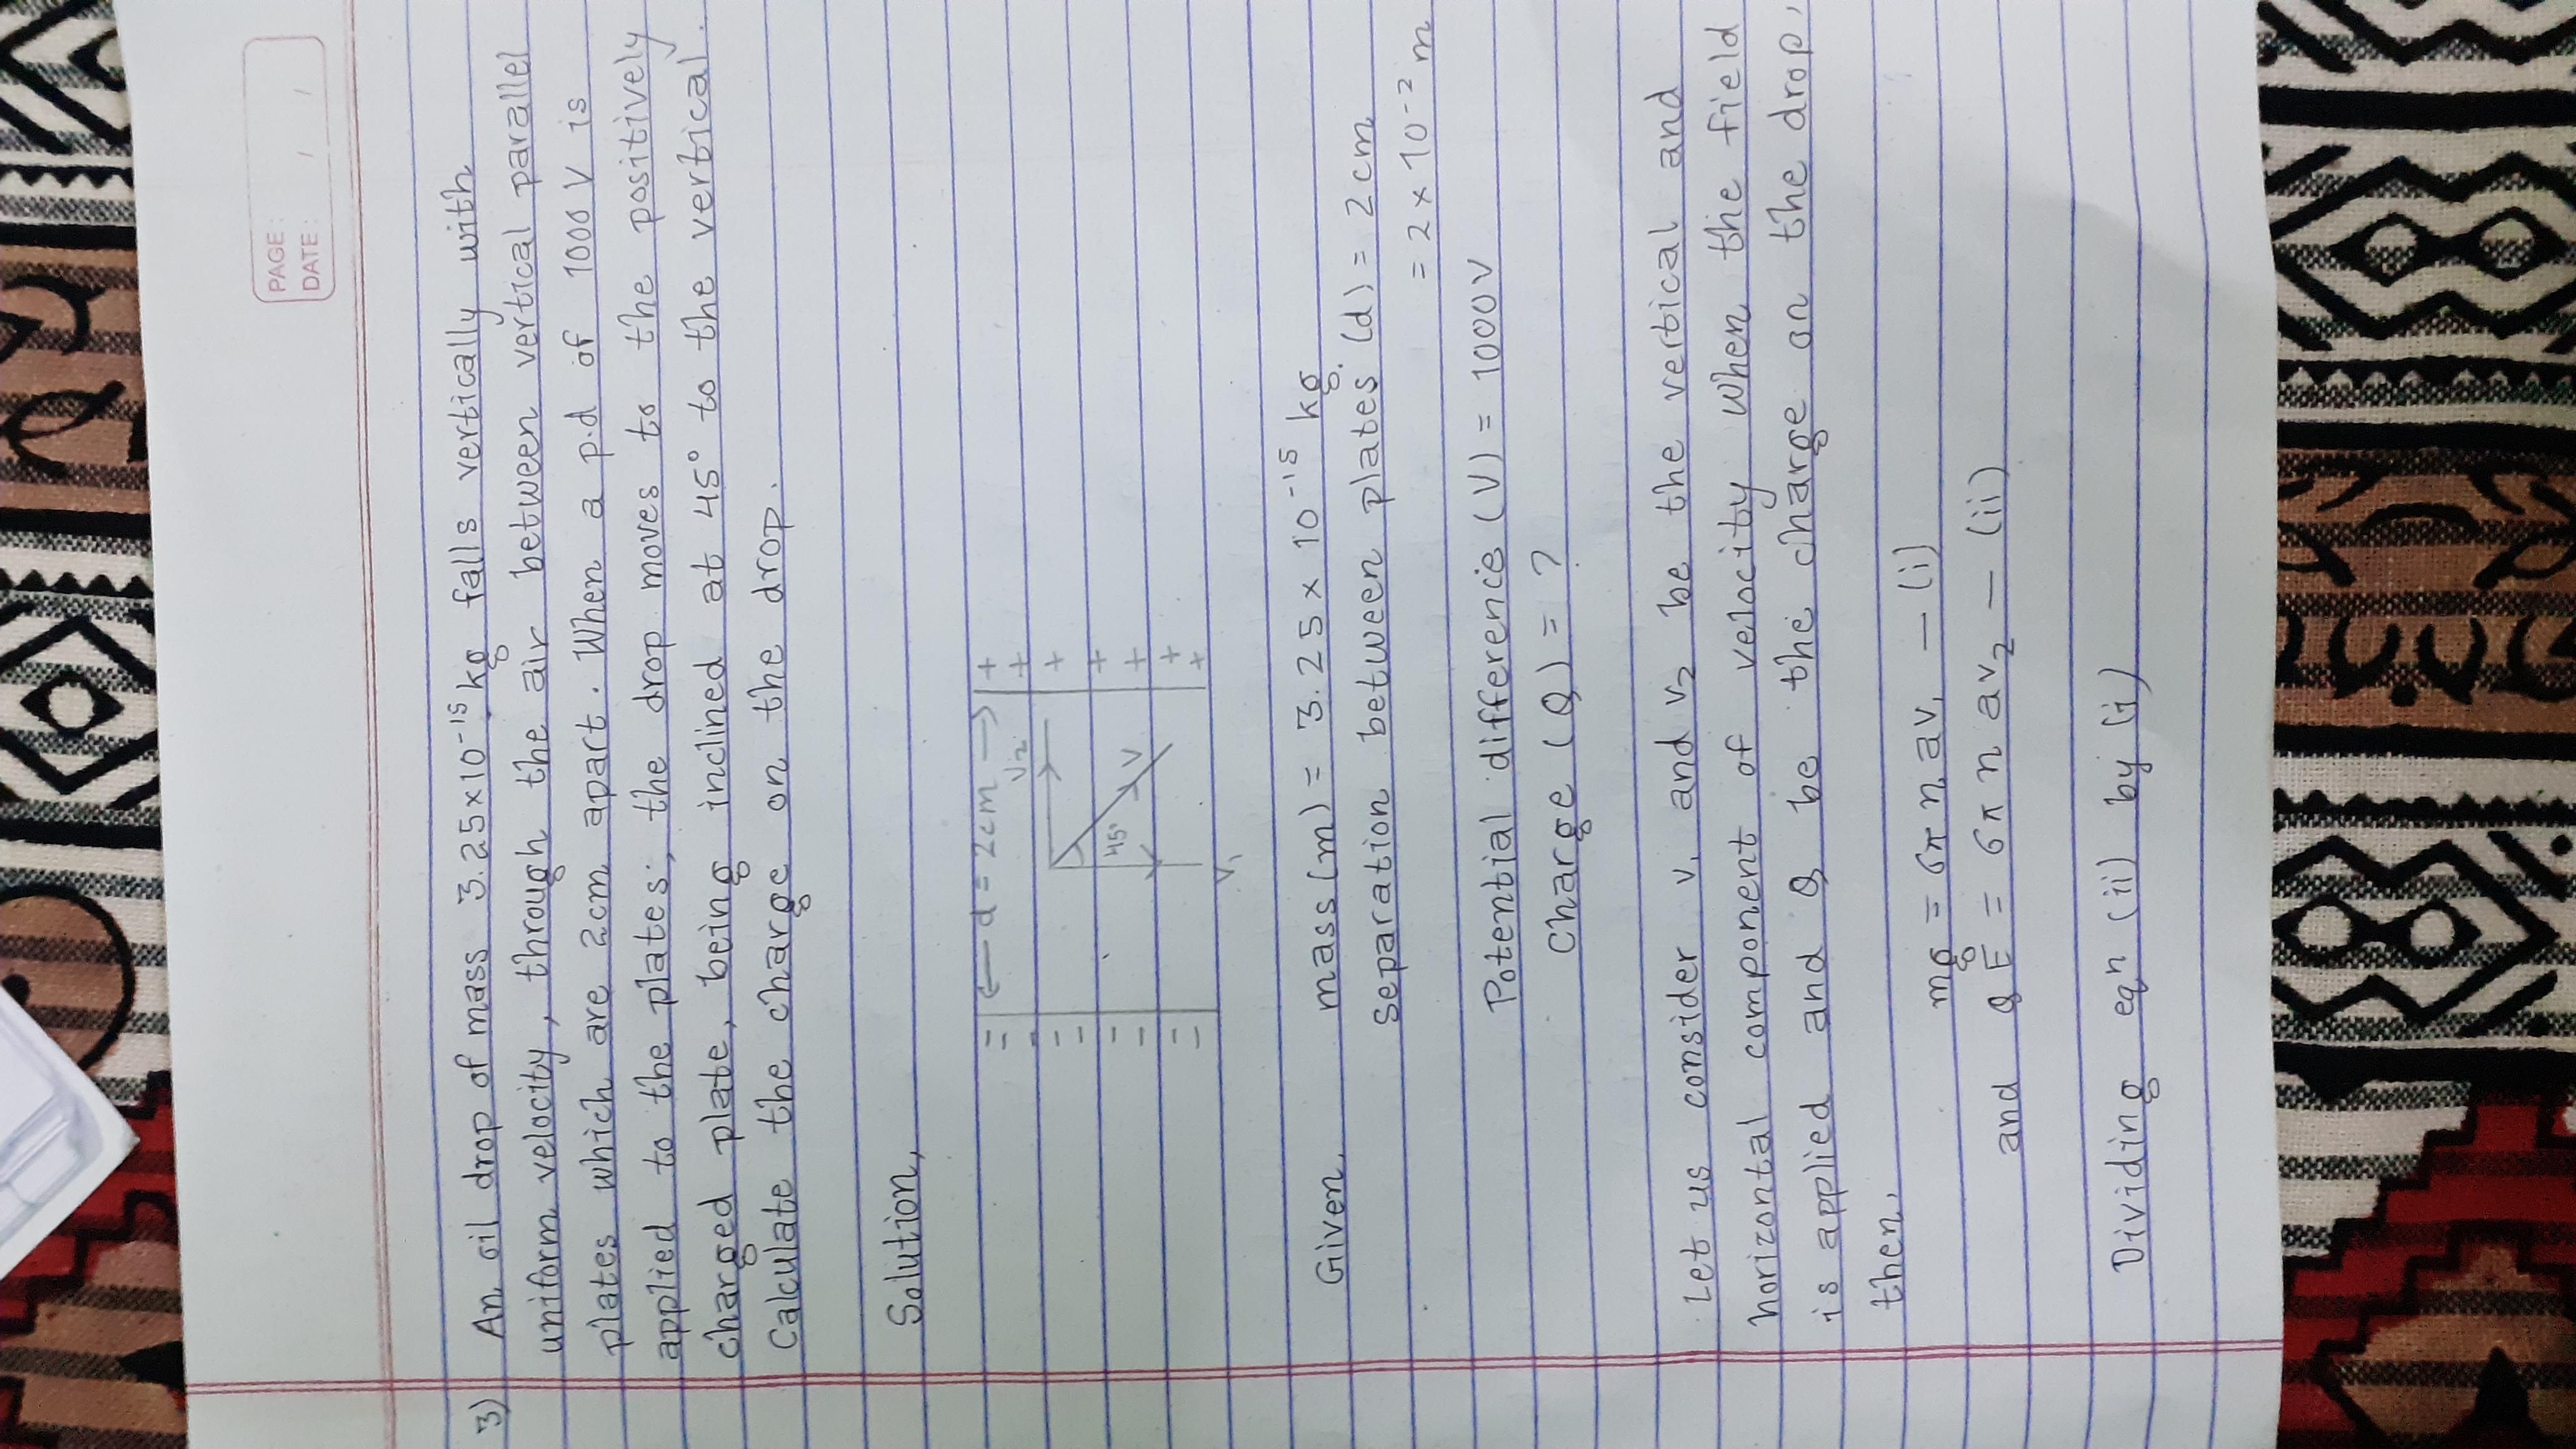 PAGE:
DATE: / /
3) An oil drop of mass 3.25×10⁻¹⁵ kg falls vertically with
uniform velocity, through the air between vertical parallel
plates which are 2cm apart. When a p.d of 1000 V is
applied to the plates; the drop moves to the positively
charged plate, being inclined at 45° to the vertical.
Calculate the charge on the drop.
Solution,
← d = 2cm →
v₂
45°
v
v₁
Given, mass(m) = 3.25 × 10⁻¹⁵ kg.
separation between plates (d) = 2cm
= 2 × 10⁻² m
Potential difference (V) = 1000V
Charge (Q) = ?
Let us consider v₁ and v₂ be the vertical and
horizontal component of velocity when the field
is applied and Q be the charge on the drop,
then,
mg = 6π η av₁ — (i)
and QE = 6π η av₂ — (ii)
Dividing eqⁿ (ii) by (i)